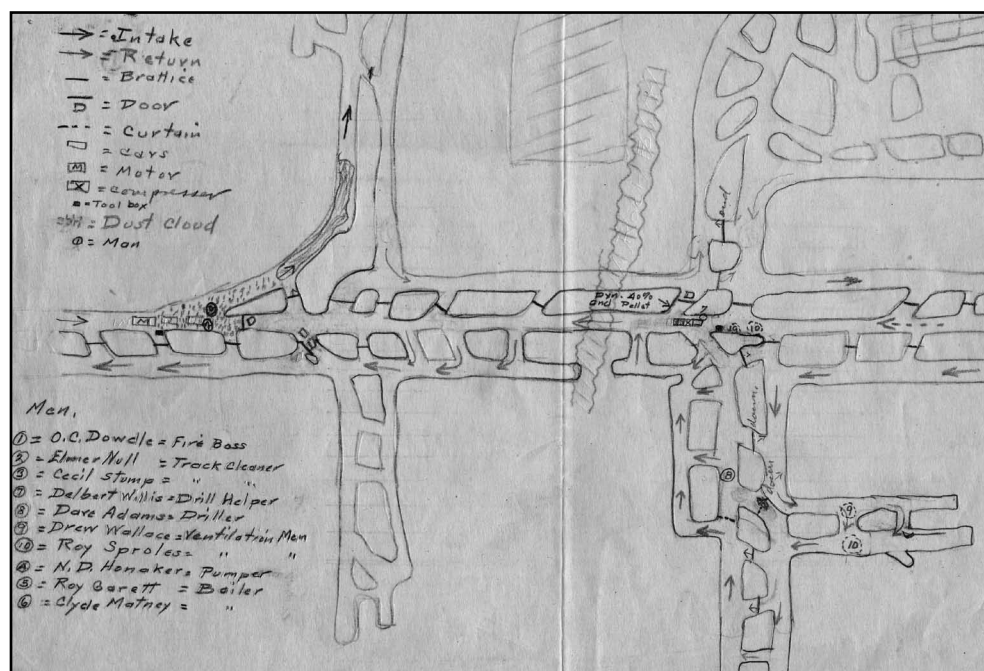 → = Intake
→ = Return
— = Brattice
D = Door
--- = Curtain
▭ = Cars
M = Motor
X = Compressor
▪ = Tool box
= Dust Cloud
Φ = Man
Dyn. 40%
and Pellet
D
D
M
X
7
9
10
8
9
10
down
Men.
① = O.C. Dowdle = Fire Boss
② = Elmer Null = Track Cleaner
③ = Cecil Stump = " "
⑦ = Delbert Willis = Drill Helper
⑧ = Dave Adams = Driller
⑨ = Drew Wallace = Ventilation Men
⑩ = Roy Sproles = " "
④ = N.D. Honaker = Pumper
⑤ = Roy Garett = Bailer
⑥ = Clyde Matney = "